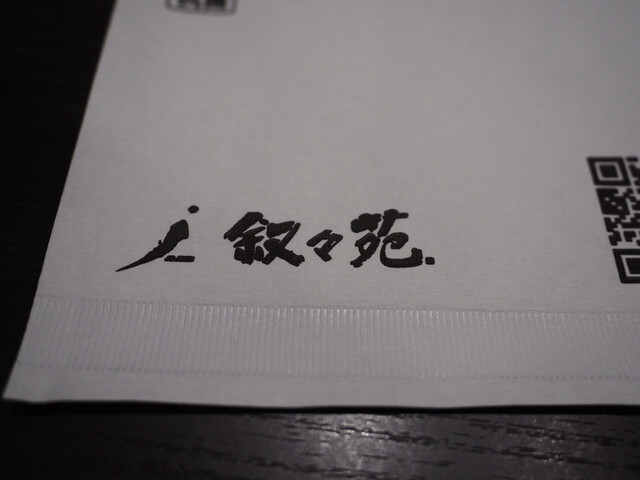 叙々苑.